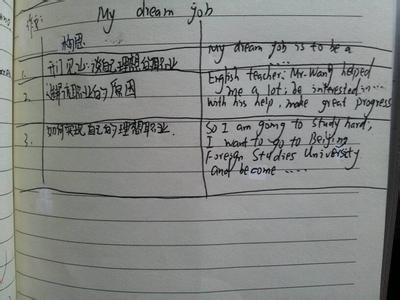 作文: My dream job
构思
My dream job is to be a ....
1. 开门见山:谈自己理想的职业
English teacher. Mr. Wang helped
2. 选择该职业的原因
me a lot; be interested in...
with his help, made great progress
3. 如何实现自己的理想职业.
So I am going to study hard,
I want to go to Beijing
Foreign Studies University
and become ....